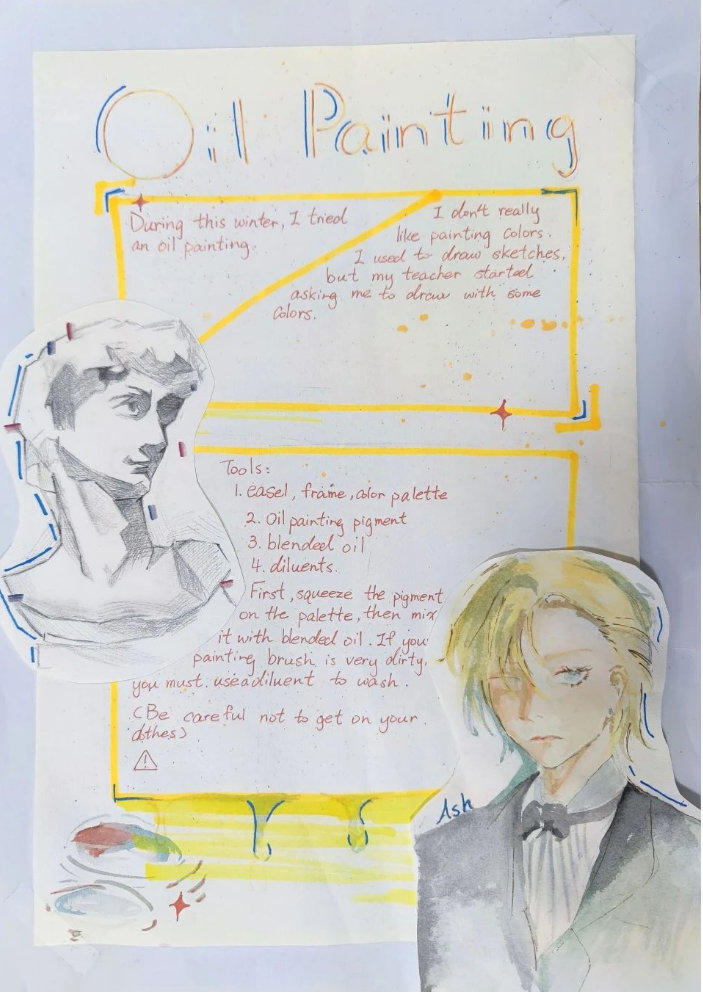 Oil Painting
During this winter, I tried
an oil painting.
I don't really
like painting colors.
I used to draw sketches,
but my teacher started
asking me to draw with some
colors.
Tools:
1. easel, frame, color palette
2. Oil painting pigment
3. blended oil
4. diluents.
First, squeeze the pigment
on the palette, then mix
it with blended oil. If you
painting brush is very dirty,
you must use a diluent to wash.
(Be careful not to get on your
clothes)
Ash